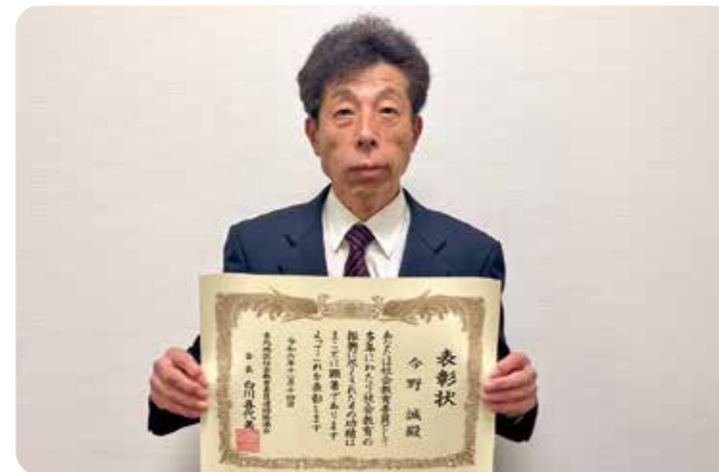 表彰状
今野 誠 殿
あなたは社会教育委員として
多年にわたり社会教育の
振興に尽くされたその功績は
まことに顕著であります
よってこれを表彰します
令和六年十一月十四日
社会教育委員連絡協議会
会長 白川喜代美